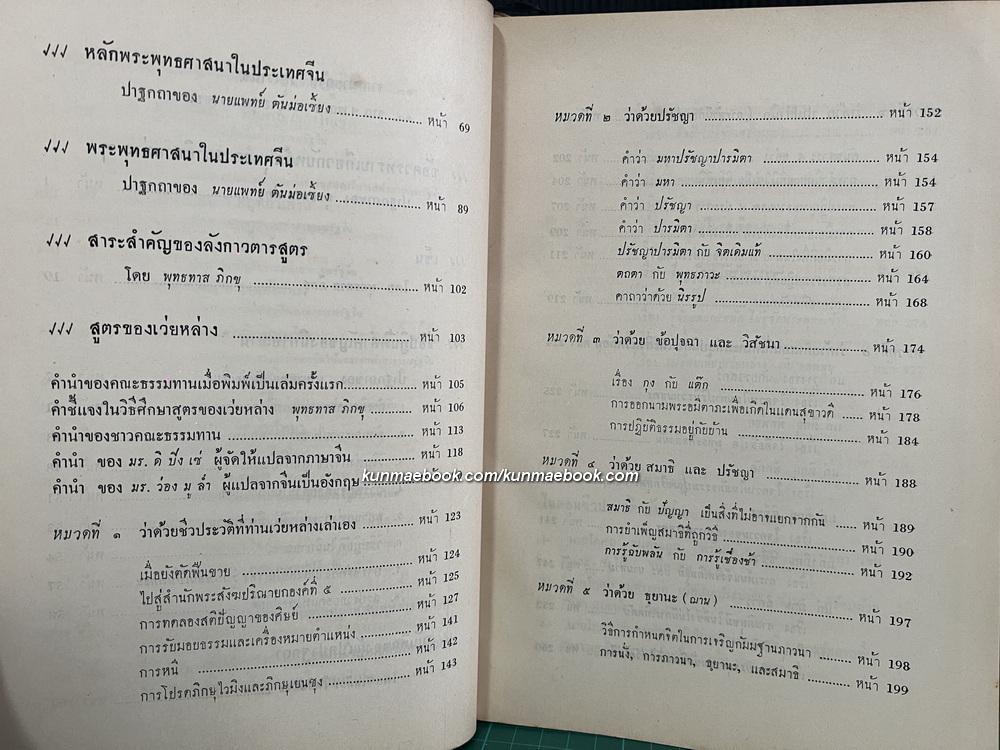 √√√ หลักพระพุทธศาสนาในประเทศจีน
ปาฐกถาของ นายแพทย์ ตันม่อเซี้ยง .......... หน้า 69
√√√ พระพุทธศาสนาในประเทศจีน
ปาฐกถาของ นายแพทย์ ตันม่อเซี้ยง .......... หน้า 89
√√√ สาระสำคัญของลังกาวตารสูตร
โดย พุทธทาส ภิกขุ .......... หน้า 102
√√√ สูตรของเว่ยหล่าง .......... หน้า 103
คำนำของคณะธรรมทานเมื่อพิมพ์เป็นเล่มครั้งแรก .......... หน้า 105
คำชี้แจงในวิธีศึกษาสูตรของเว่ยหล่าง พุทธทาส ภิกขุ .......... หน้า 106
คำนำของชาวคณะธรรมทาน .......... หน้า 113
คำนำ ของ มร. ดิ ปิงเซ่ ผู้จัดให้แปลจากภาษาจีน .......... หน้า 118
คำนำ ของ มร. ว่อง มู ลำ ผู้แปลจากจีนเป็นอังกฤษ ..........
หมวดที่ ๑ ว่าด้วยชีวประวัติที่ท่านเว่ยหล่างเล่าเอง .......... หน้า 123
เมื่อยังตัดฟืนขาย .......... หน้า 124
ไปสู่สำนักพระสังฆปริณายกองค์ที่ ๕ .......... หน้า 125
การทดลองสติปัญญาของศิษย์ .......... หน้า 127
การรับมอบธรรมและเครื่องหมายตำแหน่ง .......... หน้า 141
การหนี .......... หน้า 142
การโปรดภิกษุไวมิงและภิกษุเยนชุง .......... หน้า 143
หมวดที่ ๒ ว่าด้วยปรัชญา .......... หน้า 152
คำว่า มหาปรัชญาปารมิตา .......... หน้า 154
คำว่า มหา .......... หน้า 154
คำว่า ปรัชญา .......... หน้า 157
คำว่า ปารมิตา .......... หน้า 158
ปรัชญาปารมิตา กับ จิตเดิมแท้ .......... หน้า 160
ตถตา กับ พุทธภาวะ .......... หน้า 164
คาถาว่าด้วย นิรรูป .......... หน้า 168
หมวดที่ ๓ ว่าด้วย ข้อปุจฉา และ วิสัชนา .......... หน้า 174
เรื่อง กุง กับ แต๊ก .......... หน้า 176
การออกนามพระอมิตาภะเพื่อเกิดในแดนสุขาวดี .......... หน้า 178
การปฏิบัติธรรมอยู่กับบ้าน .......... หน้า 184
kunmaebook.com/kunmaebook.com
หมวดที่ ๔ ว่าด้วย สมาธิ และ ปรัชญา .......... หน้า 188
สมาธิ กับ ปัญญา เป็นสิ่งที่ไม่อาจแยกจากกัน ...... หน้า 189
การบำเพ็ญสมาธิที่ถูกวิธี .......... หน้า 190
การรู้ฉับพลัน กับ การรู้เชื่องช้า .......... หน้า 192
หมวดที่ ๕ ว่าด้วย ธฺยานะ (ฌาน) .......... หน้า 197
วิธีการกำหนดจิตในการเจริญกัมมฐานภาวนา .......... หน้า 198
การนั่ง, การภาวนา, ธฺยานะ, และสมาธิ .......... หน้า 199